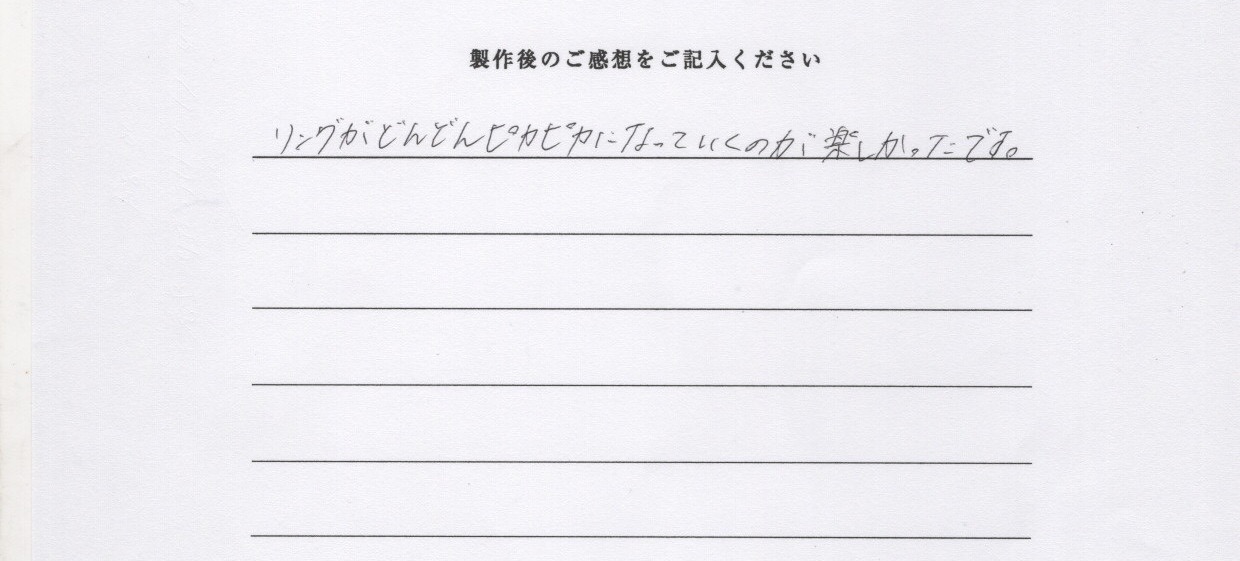 製作後のご感想をご記入ください
リングがどんどんピカピカになっていくのが楽しかったです。